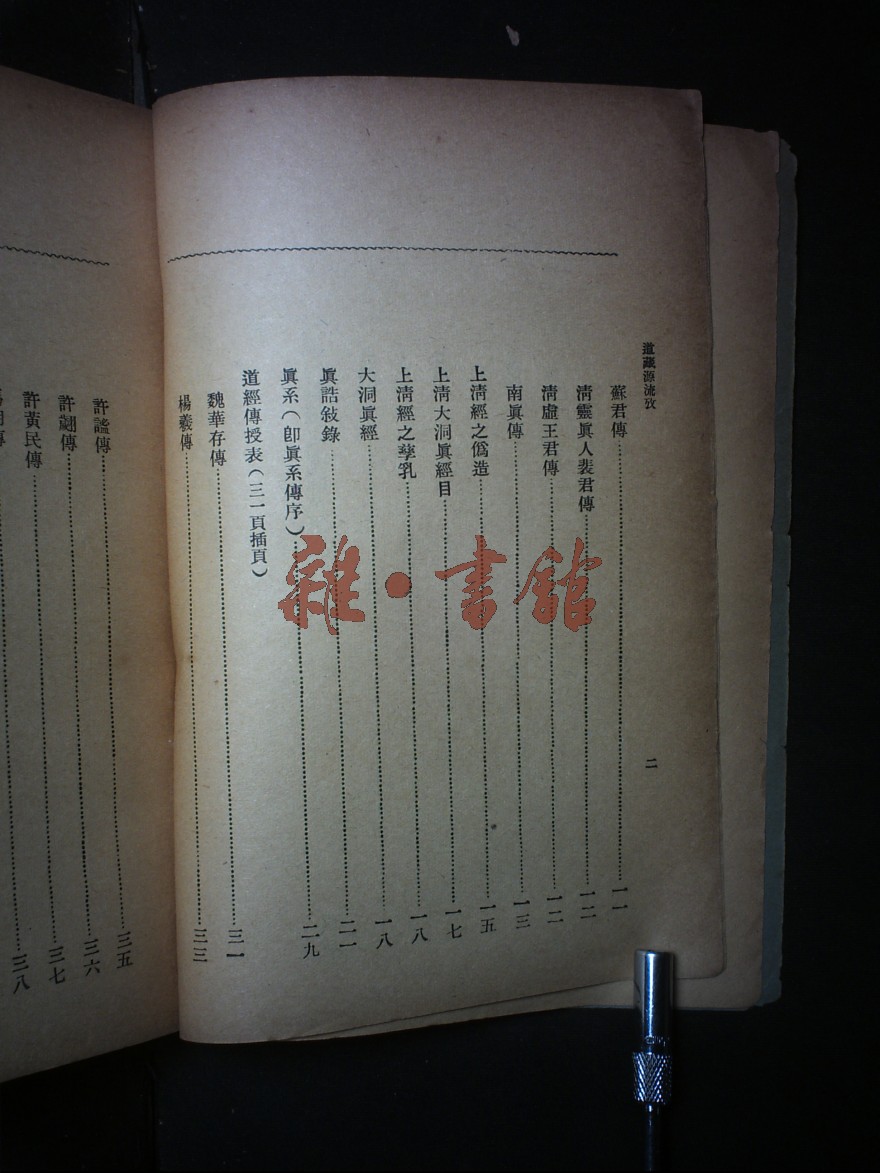 道藏源流攷
二
蘇君傳 一一
淸靈眞人裴君傳 一二
淸虛王君傳 一二
南眞傳 一三
上淸經之僞造 一五
上淸大洞眞經目 一七
上淸經之孳乳 一八
大洞眞經 一八
眞誥敍錄 二一
眞系(卽眞系傳序) 二九
道經傳授表(三一頁插頁)
魏華存傳 三一
楊羲傳 三三
許謐傳 三五
許翽傳 三六
許黃民傳 三七
三八
雜·書館